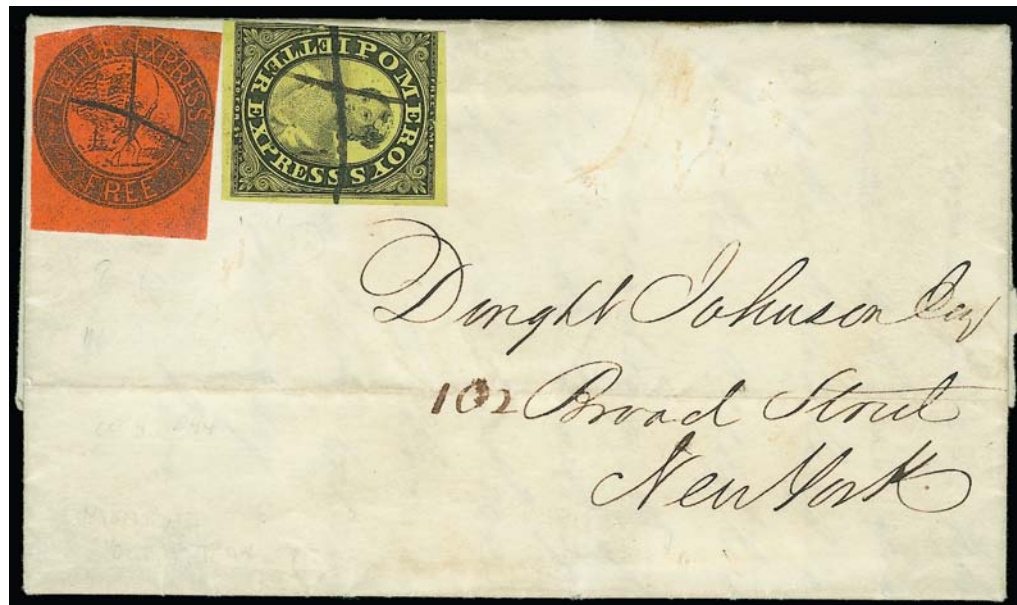 LETTER EXPRESS
FREE
POMEROY'S
LETTER EXPRESS
FREE STAMP
Dwight Johnson Esq
102 Broad Street
New York.